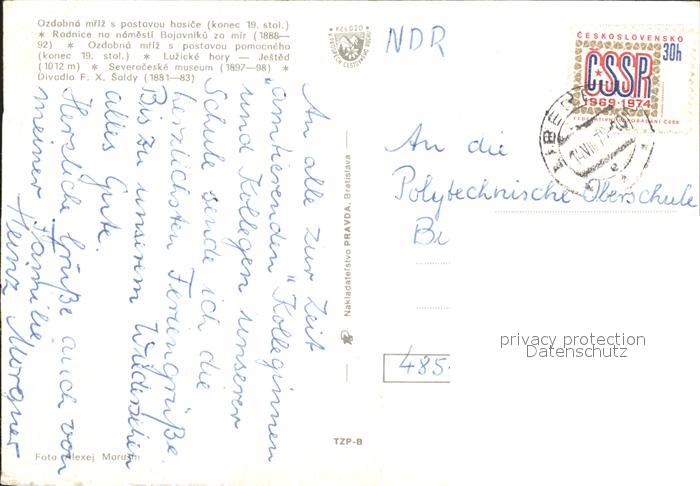 Ozdobná mříž s postavou hasiče (konec 19. stol.)
* Radnice na náměstí Bojovníků za mír (1888—
92) * Ozdobná mříž s postavou pomocného
(konec 19. stol.) * Lužické hory — Ještěd
(1012 m) * Severočeské museum (1897—98) *
Divadlo F. X. Šaldy (1881—83)
An alle zur Zeit
"amtierenden" Kolleginnen
und Kollegen unserer
Schule sende ich die
herzlichsten Feriengrüße.
Bis zu unserem Wiedersehen
alles Gute.
Herzliche Grüße auch von
meiner Familie
Heinz Morgner
Foto Alexej
TZP-B
Nakladatelstvo PRAVDA, Bratislava
Kčs 0,20
NDR
ČESKOSLOVENSKO
30h
ČSSR
1969-1974
An die
Polytechnische Oberschule
485
privacy protection
Datenschutz